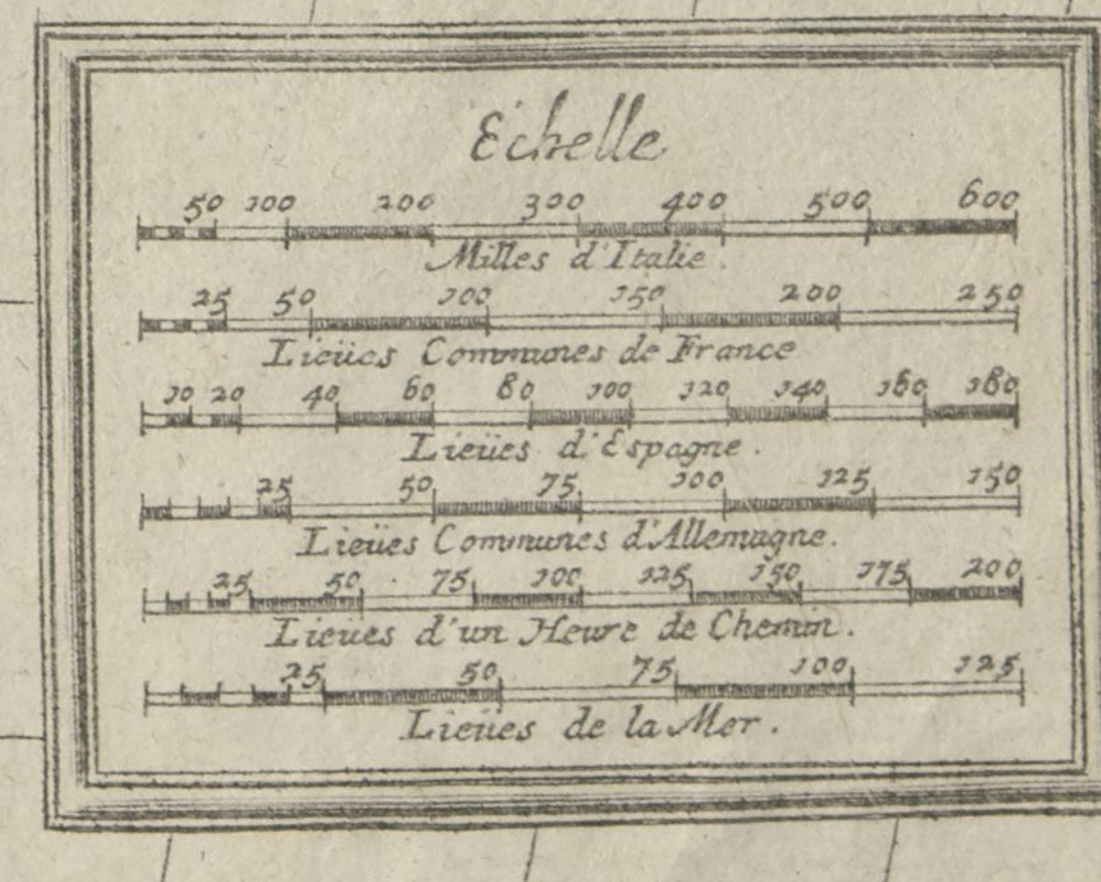 Echelle
50 100 200 300 400 500 600
Milles d'Italie.
25 50 100 150 200 250
Lieües Communes de France
10 20 40 60 80 100 120 140 160 180
Lieües d'Espagne.
25 50 75 100 125 150
Lieües Communes d'Allemagne.
25 50 75 100 125 150 175 200
Lieües d'un Heure de Chemin.
25 50 75 100 125
Lieües de la Mer.